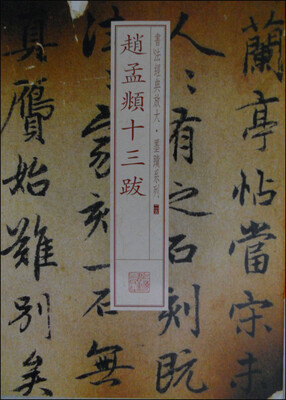 蘭亭帖當宋未
人〻有之石刻既
書法經典放大·墨蹟系列
趙孟頫十三跋
往〻家刻一石無
真贗始難別矣